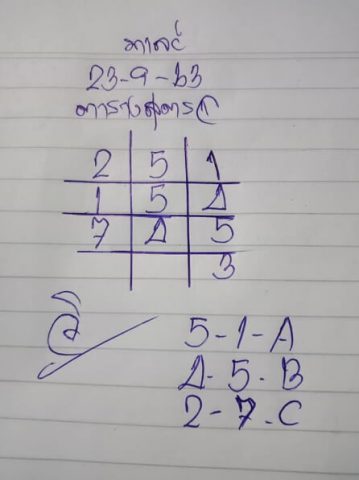 มาเลย์
23-9-63
ตารางสูตร
2 5 1
1 5 4
7 4 5
3
5-1-A
4-5-B
2-7-C